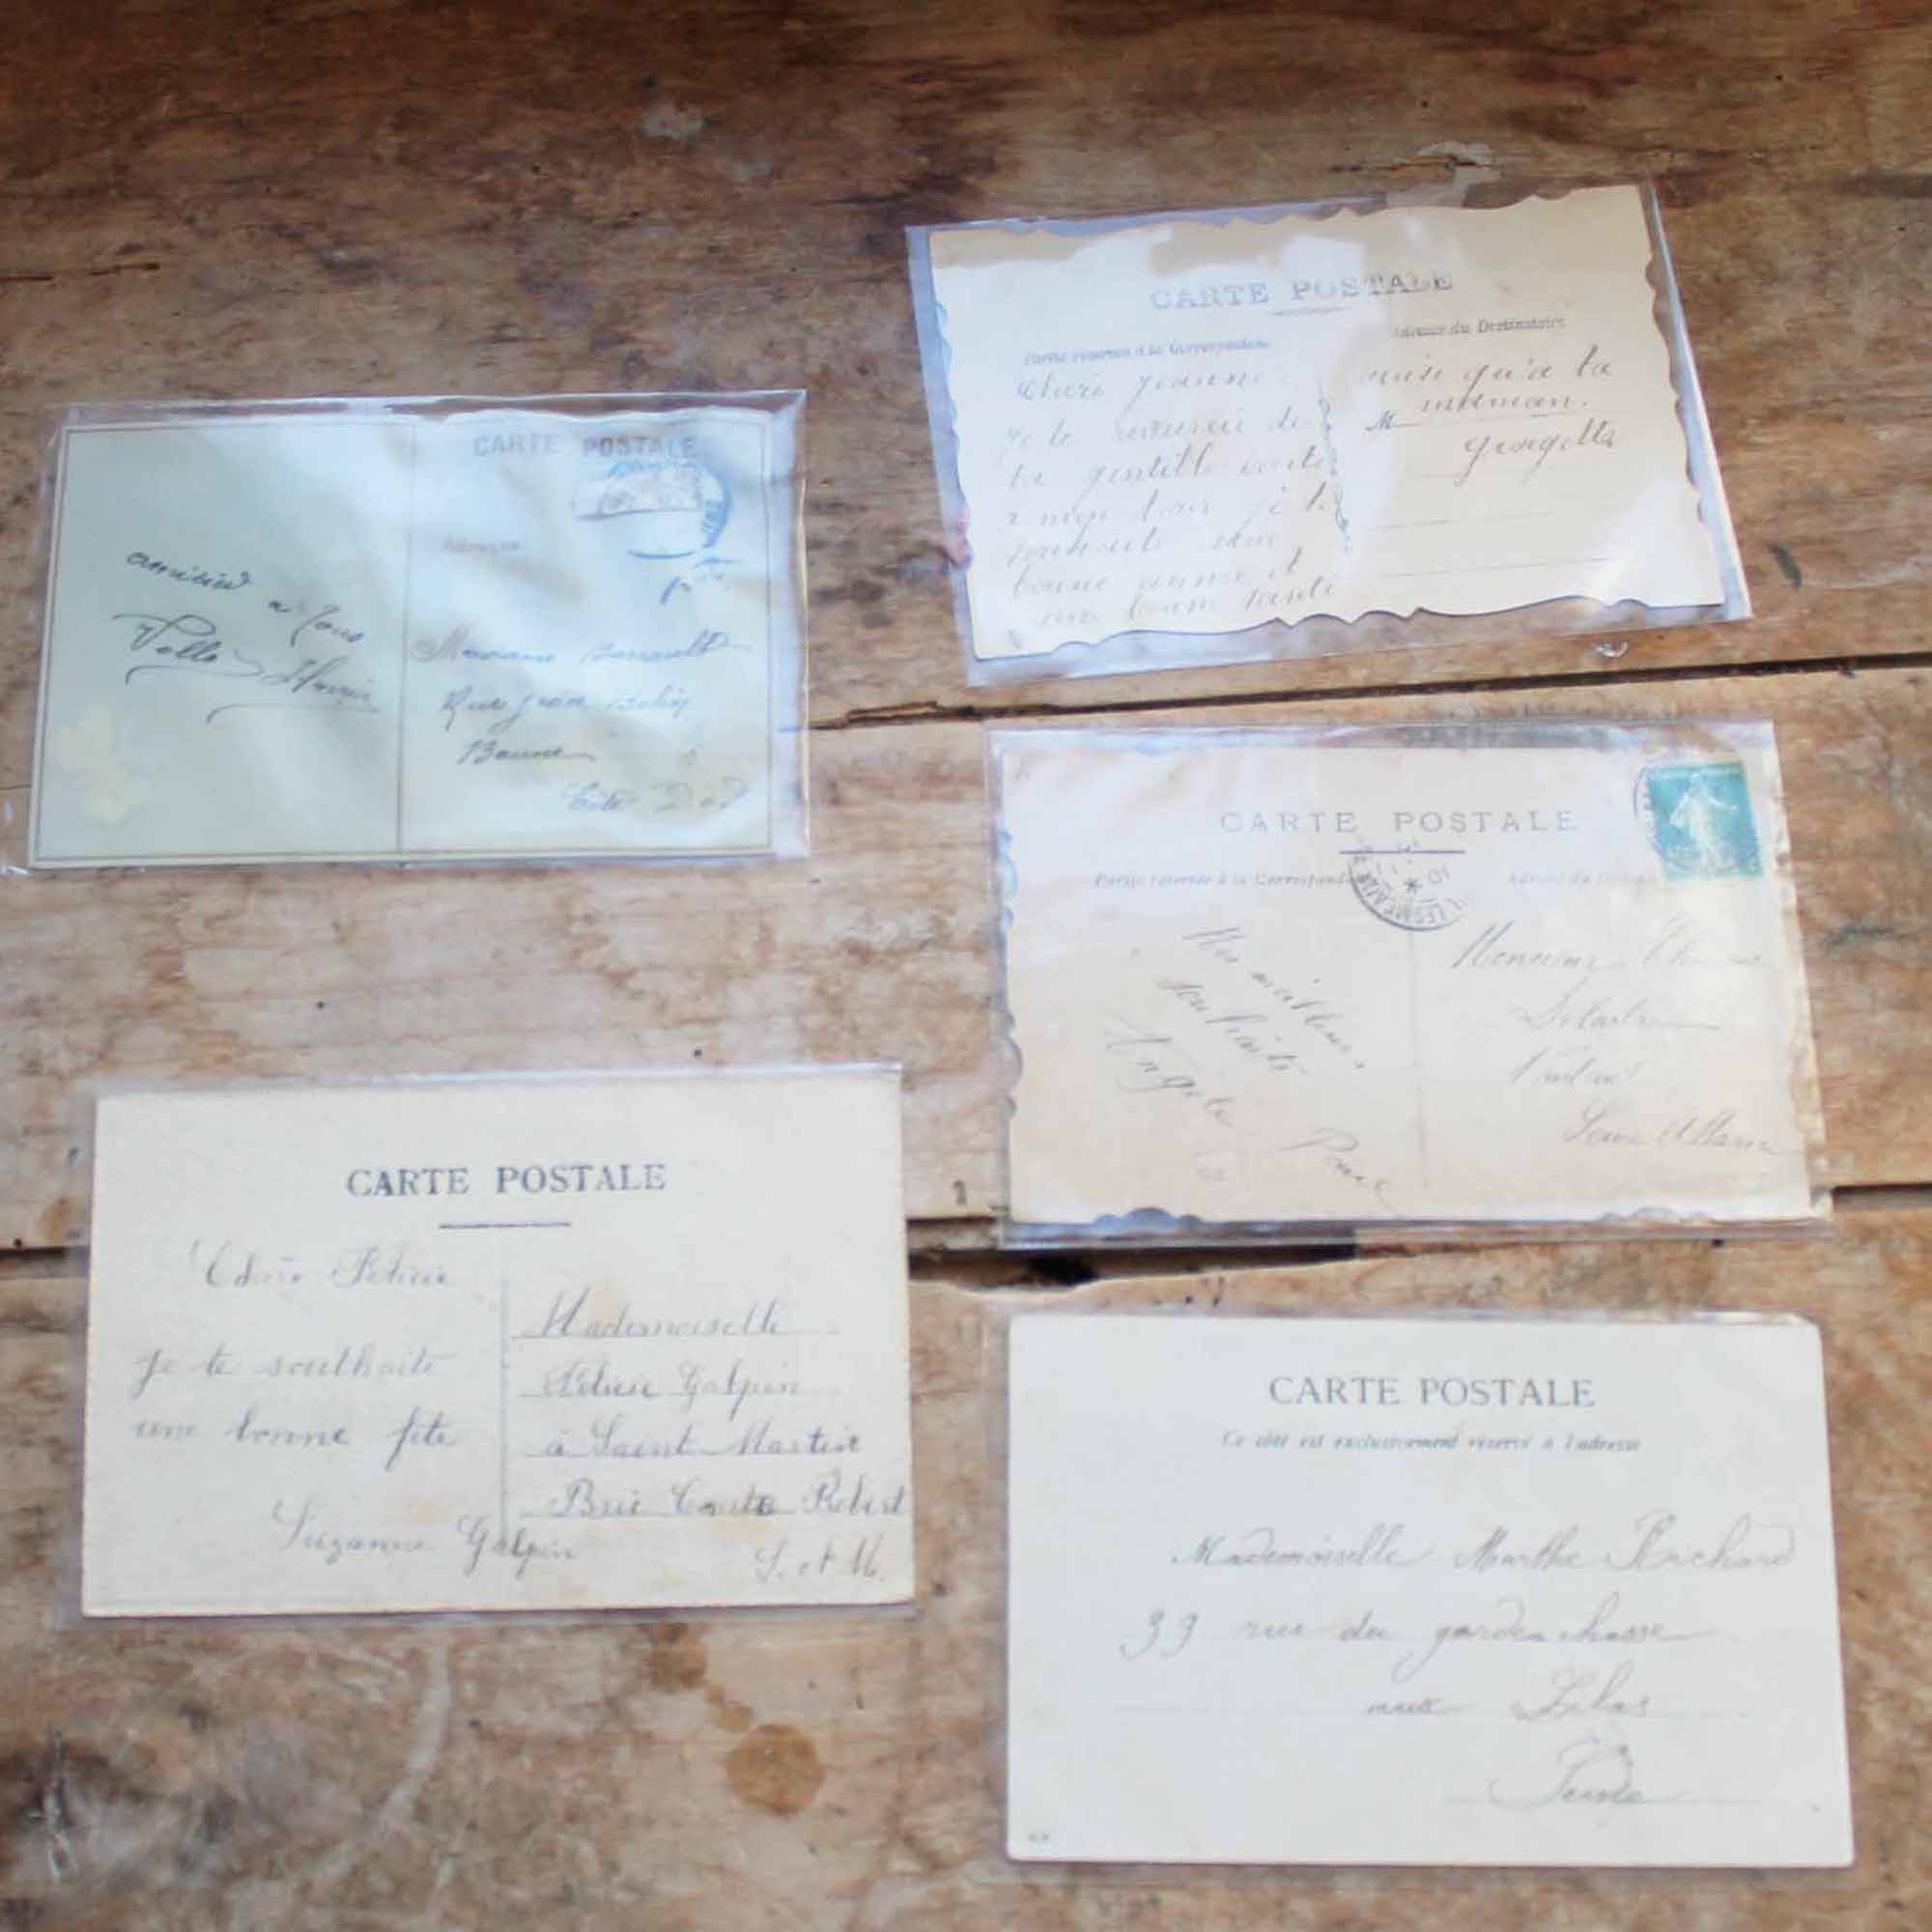 CARTE POSTALE
Adresse
amitiés a Tous
Madame
Rue Jean Belin
Baune
Côte D'or
CARTE POSTALE
Partie réservée à la Correspondance
Adresse du Destinataire
Cheri Jeanne
Je te remercie de
ta gentille carte
a mon tour je te
souhaite une
bonne année et
une bonne santé
ainsi qu'a ta
M maman.
Georgette
CARTE POSTALE
Partie réservée à la Correspondance
Adresse du
Monsieur
Seine et Marne
meilleurs
souhaits
Angèle
CARTE POSTALE
Chère Félicie
Je te souhaite
une bonne fête
Suzanne Galpin
Mademoiselle
Félicie Galpin
à Saint Martin
Brie Comte Robert
S. et M.
CARTE POSTALE
Ce côté est exclusivement réservé à l'adresse
Mademoiselle Marthe Richard
33 rue du garde chasse
aux Lilas
Seine